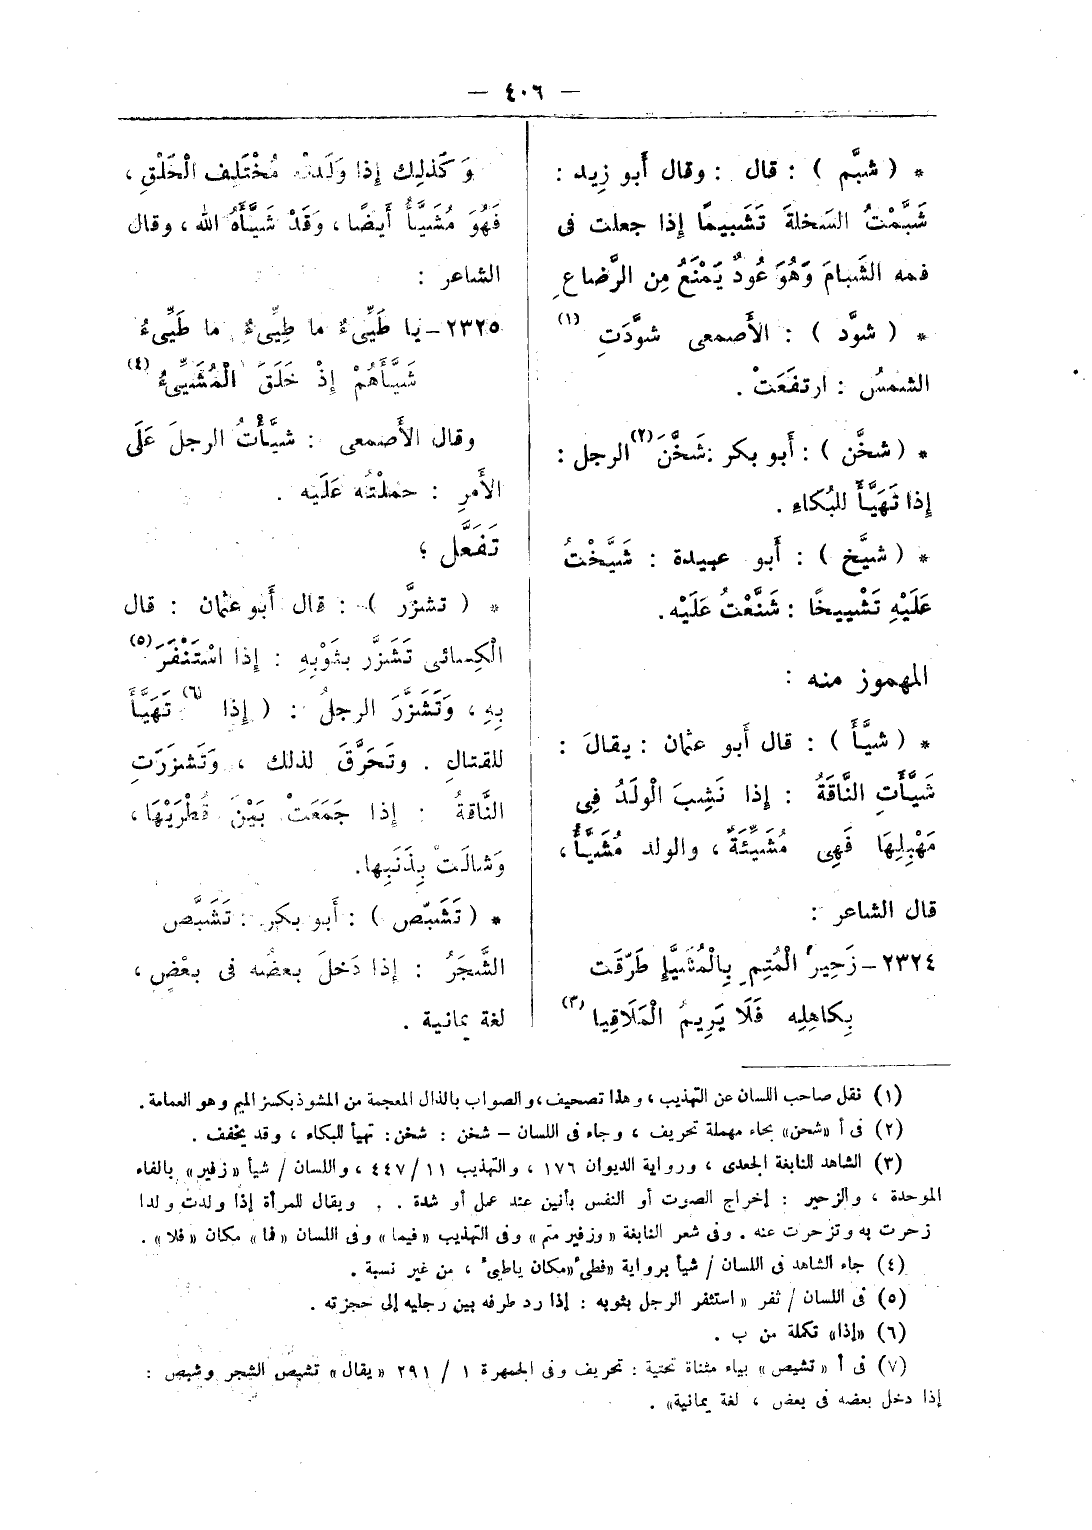 — ٤٠٦ —
* ( شبَّم ) : قال : وقال أَبو زيد :
شَبَّمْتُ السَخلةَ تَشبيمًا إذا جعلت فى
فمه الشَبامَ وَهُوَ عُودٌ يَمْنَعُ مِن الرَّضاعِ
* ( شوَّد ) : الأَصمعى شوَّدَتِ (١)
الشمسُ : ارتفَعَتْ .
* ( شخَّن ) : أَبو بكر : شَخَّنَ (٢) الرجل :
إذا تَهَيَّأَ للبُكَاءِ .
* ( شيَّخ ) : أَبو عبيدة : شَيَّخْتُ
عَلَيْهِ تَشْييخًا : شَنَّعْتُ عَلَيْه .
المهموز منه :
* ( شيَّأَ ) : قال أَبو عثمان : يقالَ :
شَيَّأَتِ النَّاقَةُ : إذا نَشِبَ الْولَدُ فِى
مَهْبِلِهَا فَهِى مُشَيِّئَةٌ ، والولد مُشَيَّأٌ ،
قال الشاعر :
٢٣٢٤ – زَحِيرَ الْمُتِمِ بِالْمُشَيَّإِ طَرّقَت
بِكاهِلِه فَلَا يَرِيمُ الْمَلَاقِيا (٣)
وَكَذلِك إذا وَلَدتْ مُخْتَلِف الْخَلْقِ ،
فَهُوَ مُشَيَّأٌ أَيضًا ، وَقَدْ شَيَّأَهُ الله ، وقال
الشاعر :
٢٣٢٥ – يا طَيِّىءُ ما طِيِّىءُ ما طَيِّىءُ
شَيَّأَهُمْ إذْ خَلَقَ الْمُشَيِّىءُ (٤)
وقال الأَصمعى : شيَّأْتُ الرجلَ عَلَى
الأَمرِ : حملْتُه عَلَيه .
تَفَعَّل ؛
* ( تشزَّر ) : قال أَبو عثمان : قال
الْكِسائى تَشَزَّر بثَوْبِهِ : إذا اسْتَنْفَرَ (٥)
بِهِ ، وَتَشَزَّرَ الرجلُ : ( إذا (٦) تَهَيَّأَ
للقتالِ . وتَحَرَّقَ لذلك ، وَتَشزَرَتِ
النَّاقةُ : إذا جَمَعَتْ بَيْنَ قُطْرَيْهَا ،
وَشالَتْ بِذَنَبِها .
* ( تَشَبَّص ) : أَبو بكر : تَشَبَّص
الشَّجَرُ : إذا دَخلَ بعضُه فى بعْضٍ ،
لغة يمانية .
(١) نقل صاحب اللسان عن التهذيب ، وهذا تصحيف ، والصواب بالذال المعجمة من المشوذ بكسر الميم وهو العمامة .
(٢) فى أ «شحن» بحاء مهملة تحريف ، وجاء فى اللسان – شخن : شخن : تهيأ للبكاء ، وقد يخفف .
(٣) الشاهد للنابغة الجعدى ، ورواية الديوان ١٧٦ ، والتهذيب ١١ / ٤٤٧ ، واللسان / شيأ «زفير» بالفاء
الموحدة ، والزحير : إخراج الصوت أو النفس بأنين عند عمل أو شدة . . ويقال للمرأة إذا ولدت ولدا
زحرت به وتزحرت عنه . وفى شعر النابغة «وزفير متم» وفى التهذيب «فيما» وفى اللسان «فما» مكان «فلا» .
(٤) جاء الشاهد فى اللسان / شيأ برواية «فطى» «مكان ياطيى» ، من غير نسبة .
(٥) فى اللسان / ثفر « استثفر الرجل بثوبه : إذا رد طرفه بين رجليه إلى حجزته .
(٦) «إذا» تكملة من ب .
(٧) فى أ « تشيص » بياء مثناة تحتية : تحريف وفى الجمهرة ١ / ٢٩١ «يقال» تشبص الشجر وشبص :
إذا دخل بعضه فى بعض ، لغة يمانية» .